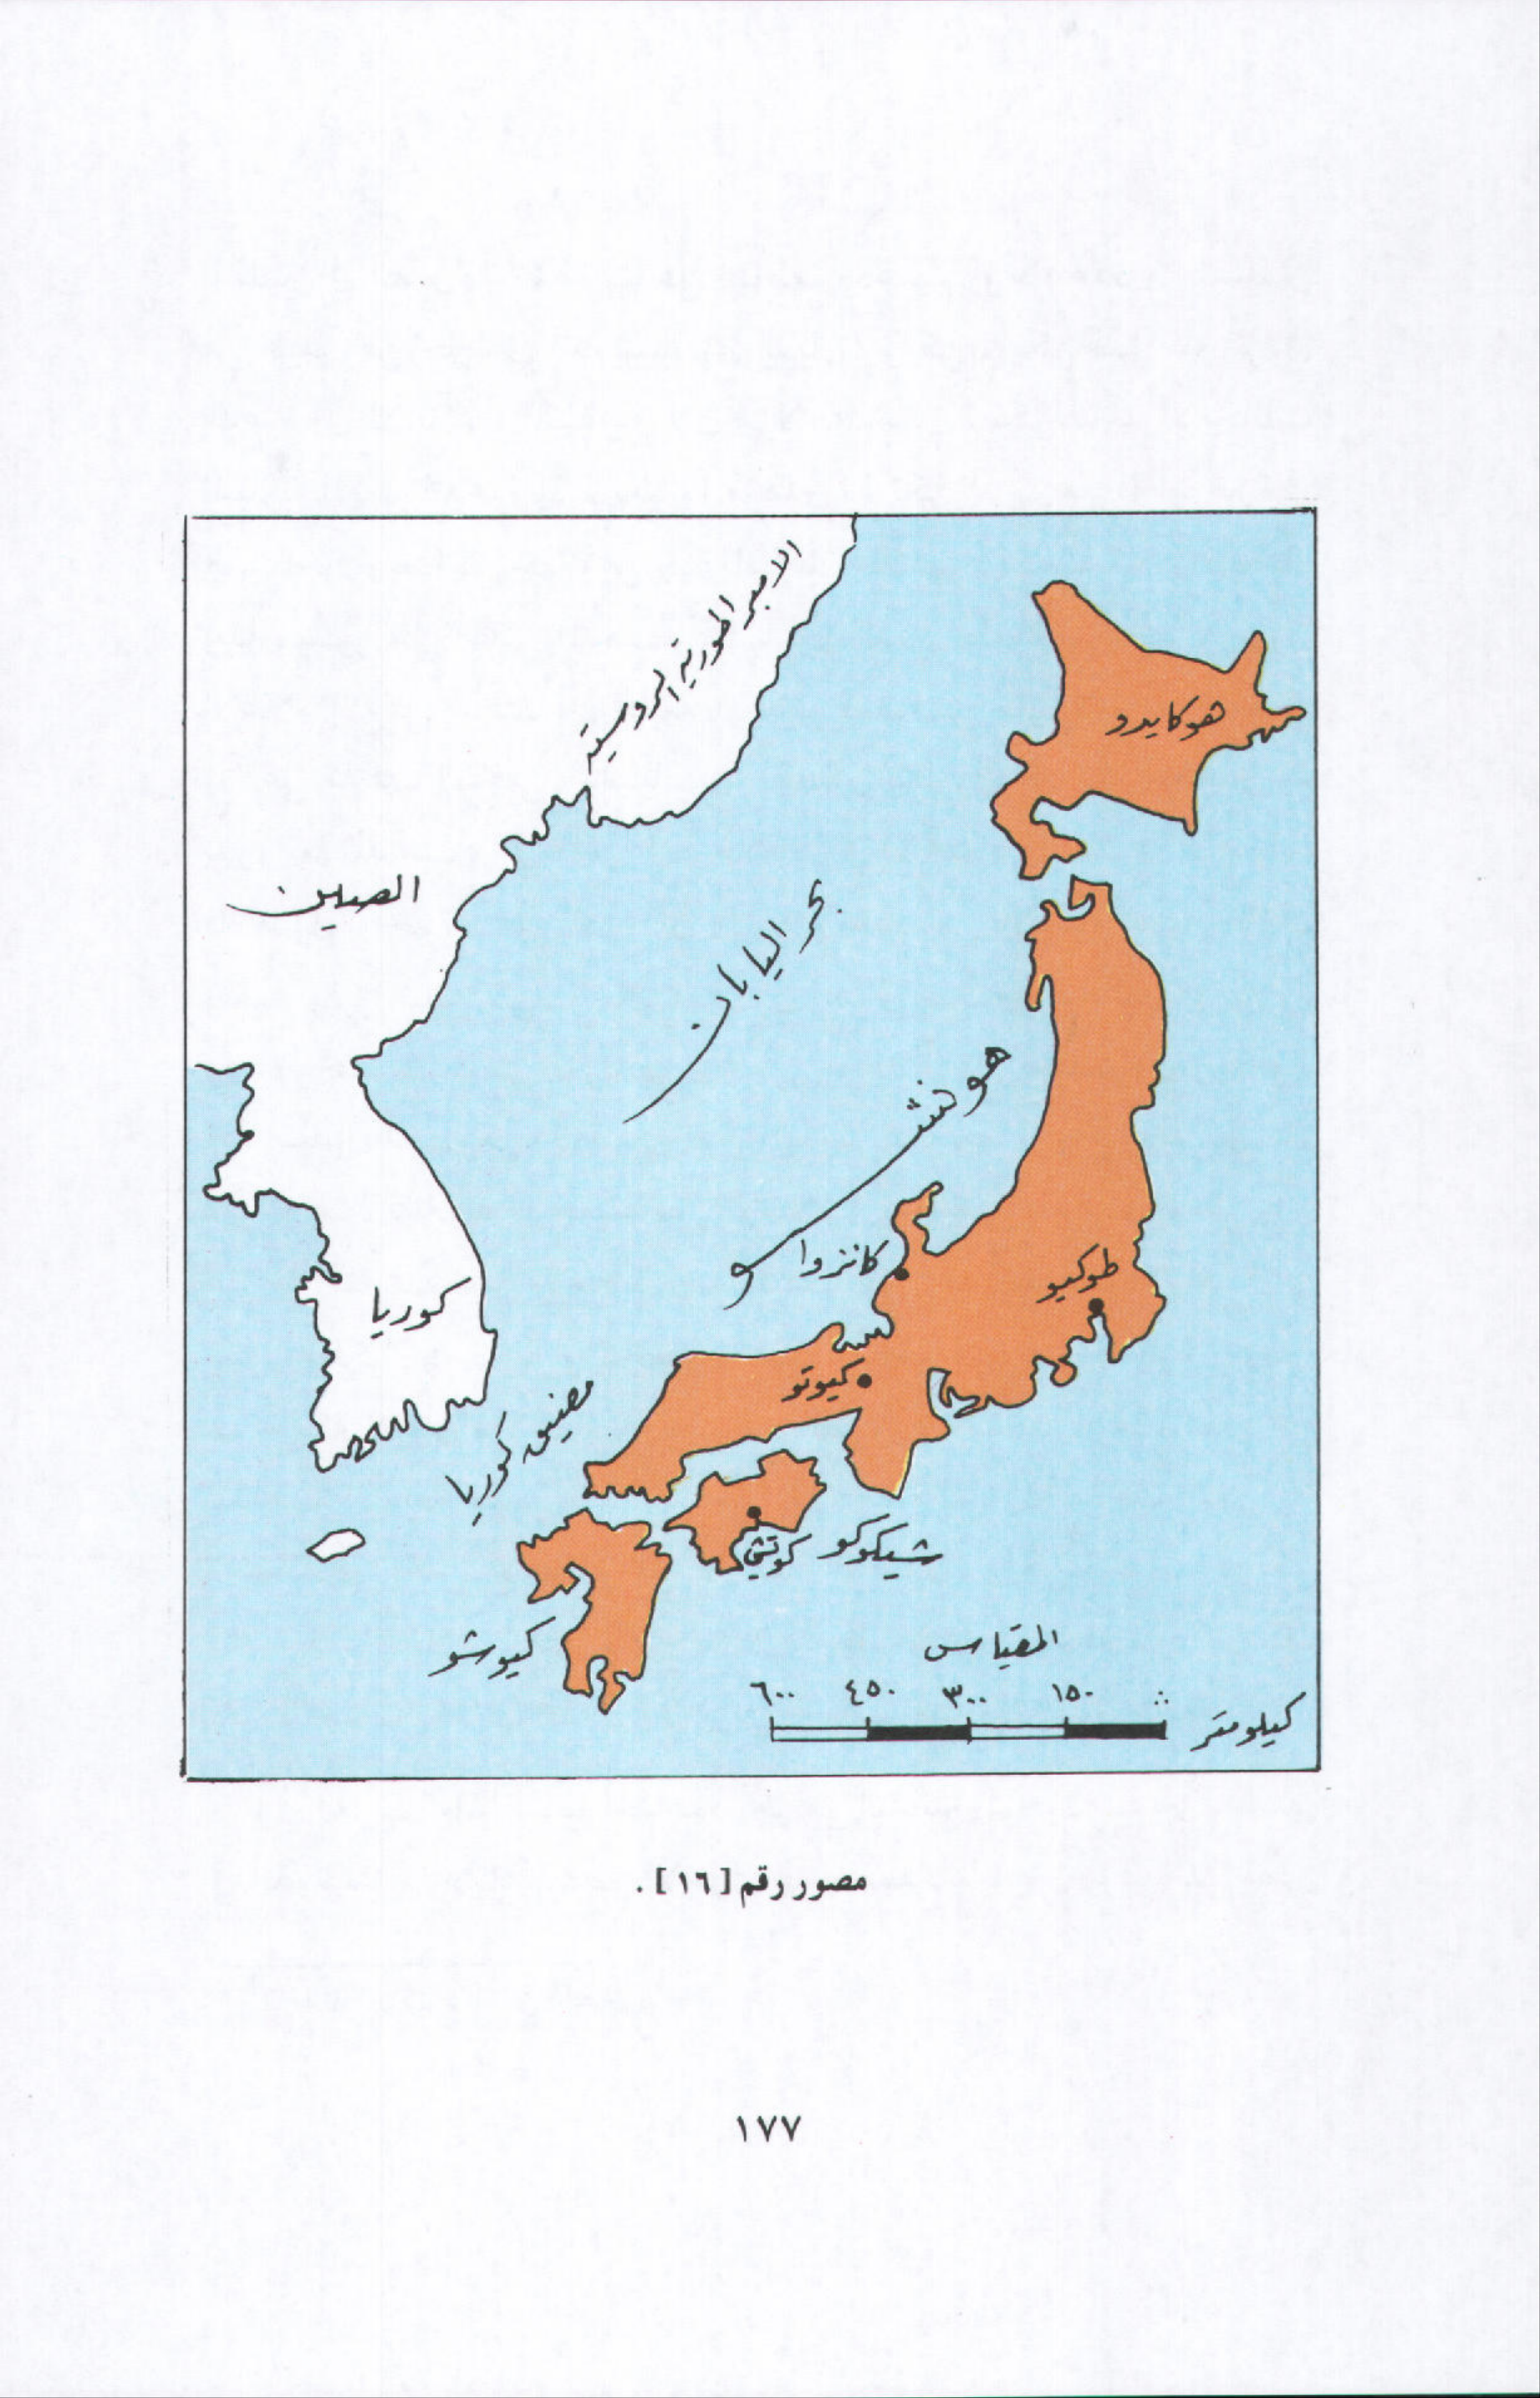 الامبراطورية الروسية
هوكايدو
الصين
بحر اليابان
هونشو
كانزوا
طوكيو
كوريا
كيوتو
مضيق كوريا
شيكوكو
كوتشي
كيوشو
المقياس
٦٠٠ ٤٥٠ ٣٠٠ ١٥٠ ٠
كيلومتر
مصور رقم [١٦] .
١٧٧